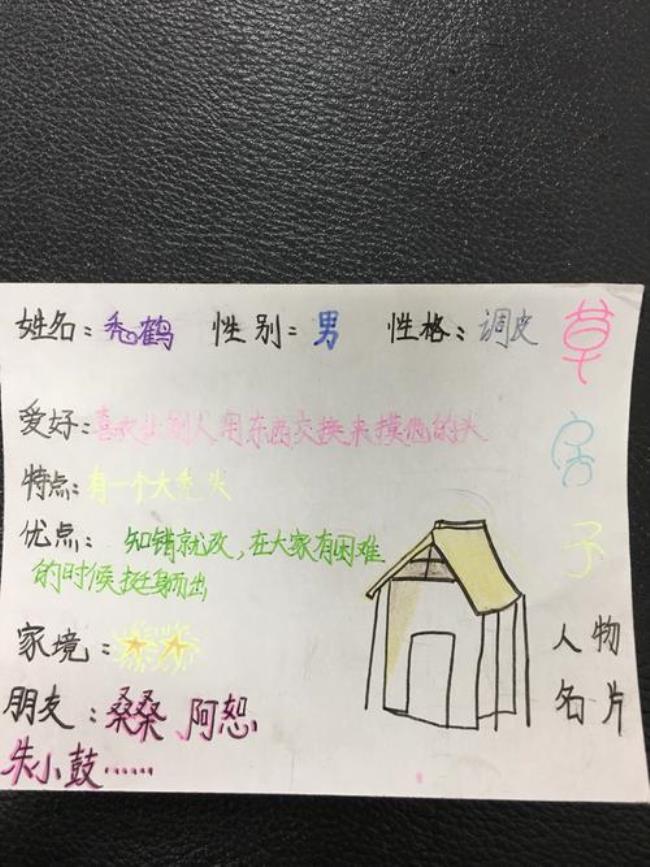 姓名：秃鹤 性别：男 性格：调皮
爱好：喜欢让别人用东西交换来摸他的头
特点：有一个大秃头
优点：知错就改，在大家有困难
的时候挺身而出
家境：
朋友：桑桑、阿恕、
朱小鼓……
草房子
人物
名片